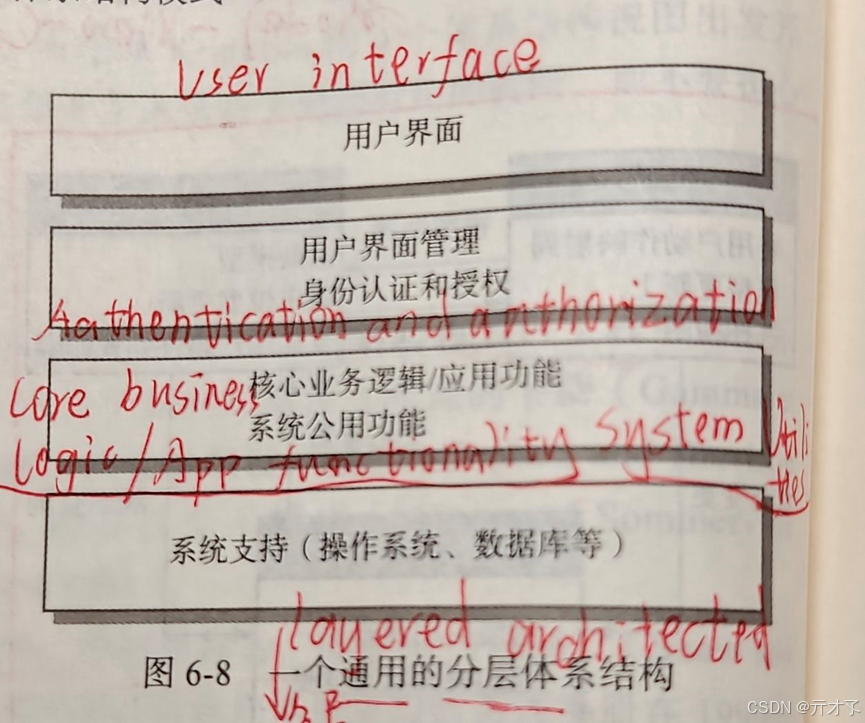 User interface
用户界面
用户界面管理
身份认证和授权
Authentication and authorization
核心业务逻辑/应用功能
core business
系统公用功能
logic/App functionality system Utili
ties
系统支持(操作系统、数据库等)
layered architected
图 6-8 一个通用的分层体系结构
CSDN @亓才孓